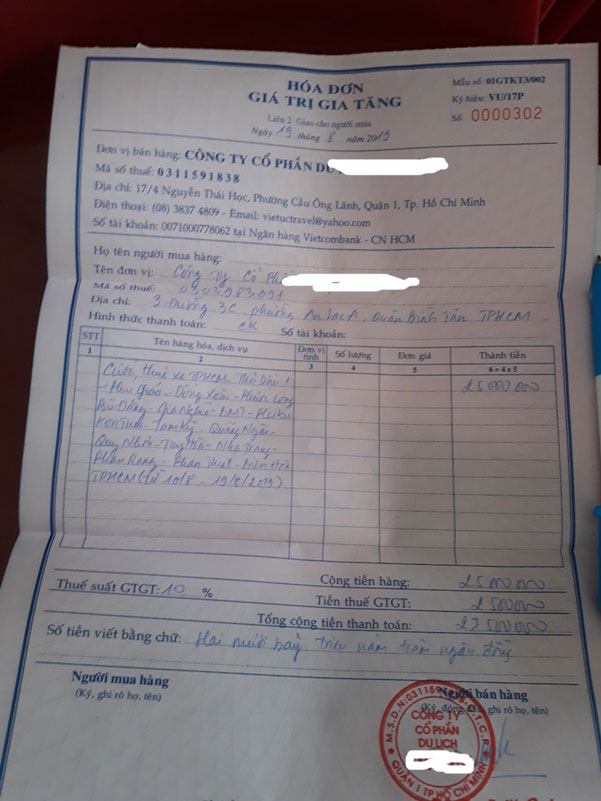 HÓA ĐƠN
GIÁ TRỊ GIA TĂNG
Liên 2: Giao cho người mua
Ngày 19 tháng 8 năm 2019
Mẫu số: 01GTKT3/002
Ký hiệu: VU/17P
Số: 0000302
Đơn vị bán hàng: CÔNG TY CỔ PHẦN DU
Mã số thuế: 0311591838
Địa chỉ: 17/4 Nguyễn Thái Học, Phường Cầu Ông Lãnh, Quận 1, Tp. Hồ Chí Minh
Điện thoại: (08) 3837 4809 - Email: vietuctravel@yahoo.com
Số tài khoản: 0071000778062 tại Ngân hàng Vietcombank - CN HCM
Họ tên người mua hàng:
Tên đơn vị: Công ty Cổ
Mã số thuế: 0303983091
Địa chỉ: 3 Đường 3C, phường An Lạc A, Quận Bình Tân TPHCM
Hình thức thanh toán: CK Số tài khoản:
STT Tên hàng hóa, dịch vụ Đơn vị tính Số lượng Đơn giá Thành tiền
1 2 3 4 5 6 = 4 x 5
Cước thuê xe TPHCM Thủ Dầu 1 25 000 000
- Phú Giáo - Đồng Xoài - Phước Long
Bù Đăng - Gia Nghĩa - BMT - Pleiku
KonTum - Tam Kỳ - Quảng Ngãi -
Quy Nhơn - Tuy Hòa - Nha Trang -
Phan Rang - Phan Thiết - Biên Hòa
TPHCM (từ 10/8 - 19/8/2019)
Cộng tiền hàng: 25 000 000
Thuế suất GTGT: 10 % Tiền thuế GTGT: 2 500 000
Tổng cộng tiền thanh toán: 27 500 000
Số tiền viết bằng chữ: Hai mươi bảy triệu năm trăm ngàn đồng
Người mua hàng Người bán hàng
(Ký, ghi rõ họ, tên) (Ký, đóng dấu, ghi rõ họ, tên)
CÔNG TY
CỔ PHẦN
DU LỊCH
QUẬN 1 TP HỒ CHÍ MINH